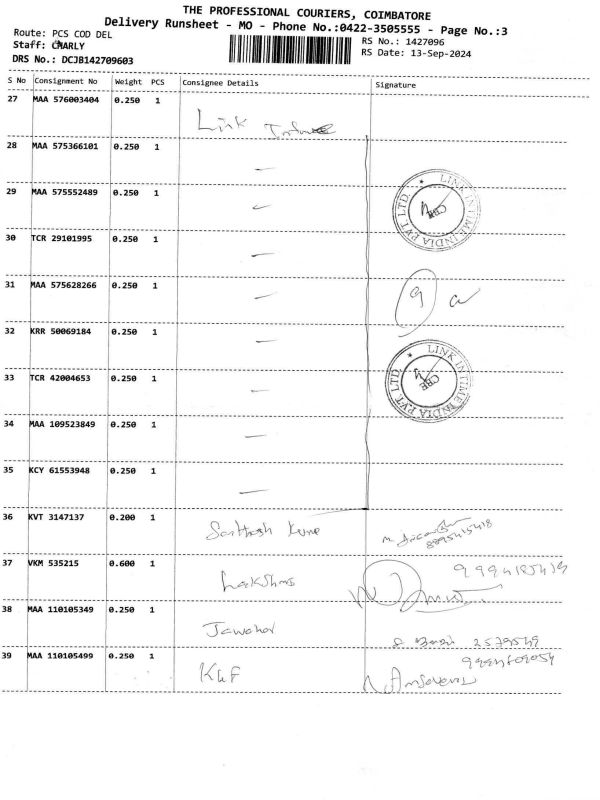 THE PROFESSIONAL COURIERS, COIMBATORE
Delivery Runsheet - MO - Phone No.:0422-3505555 - Page No.:3
Route: PCS COD DEL
Staff: CHARLY
DRS No.: DCJB142709603
RS No.: 1427096
RS Date: 13-Sep-2024
S No Consignment No Weight PCS Consignee Details Signature
27 MAA 576003404 0.250 1 Link
28 MAA 575366101 0.250 1 —
29 MAA 575552489 0.250 1
LINK INTIME INDIA PVT. LTD. * CBE
30 TCR 29101995 0.250 1 —
31 MAA 575628266 0.250 1 — 9
32 KRR 50069184 0.250 1 —
33 TCR 42004653 0.250 1 —
LINK INTIME INDIA PVT. LTD. * CBE
34 MAA 109523849 0.250 1 —
35 KCY 61553948 0.250 1 —
36 KVT 3147137 0.200 1
37 VKM 535215 0.600 1
38 MAA 110105349 0.250 1 Jawahar
39 MAA 110105499 0.250 1